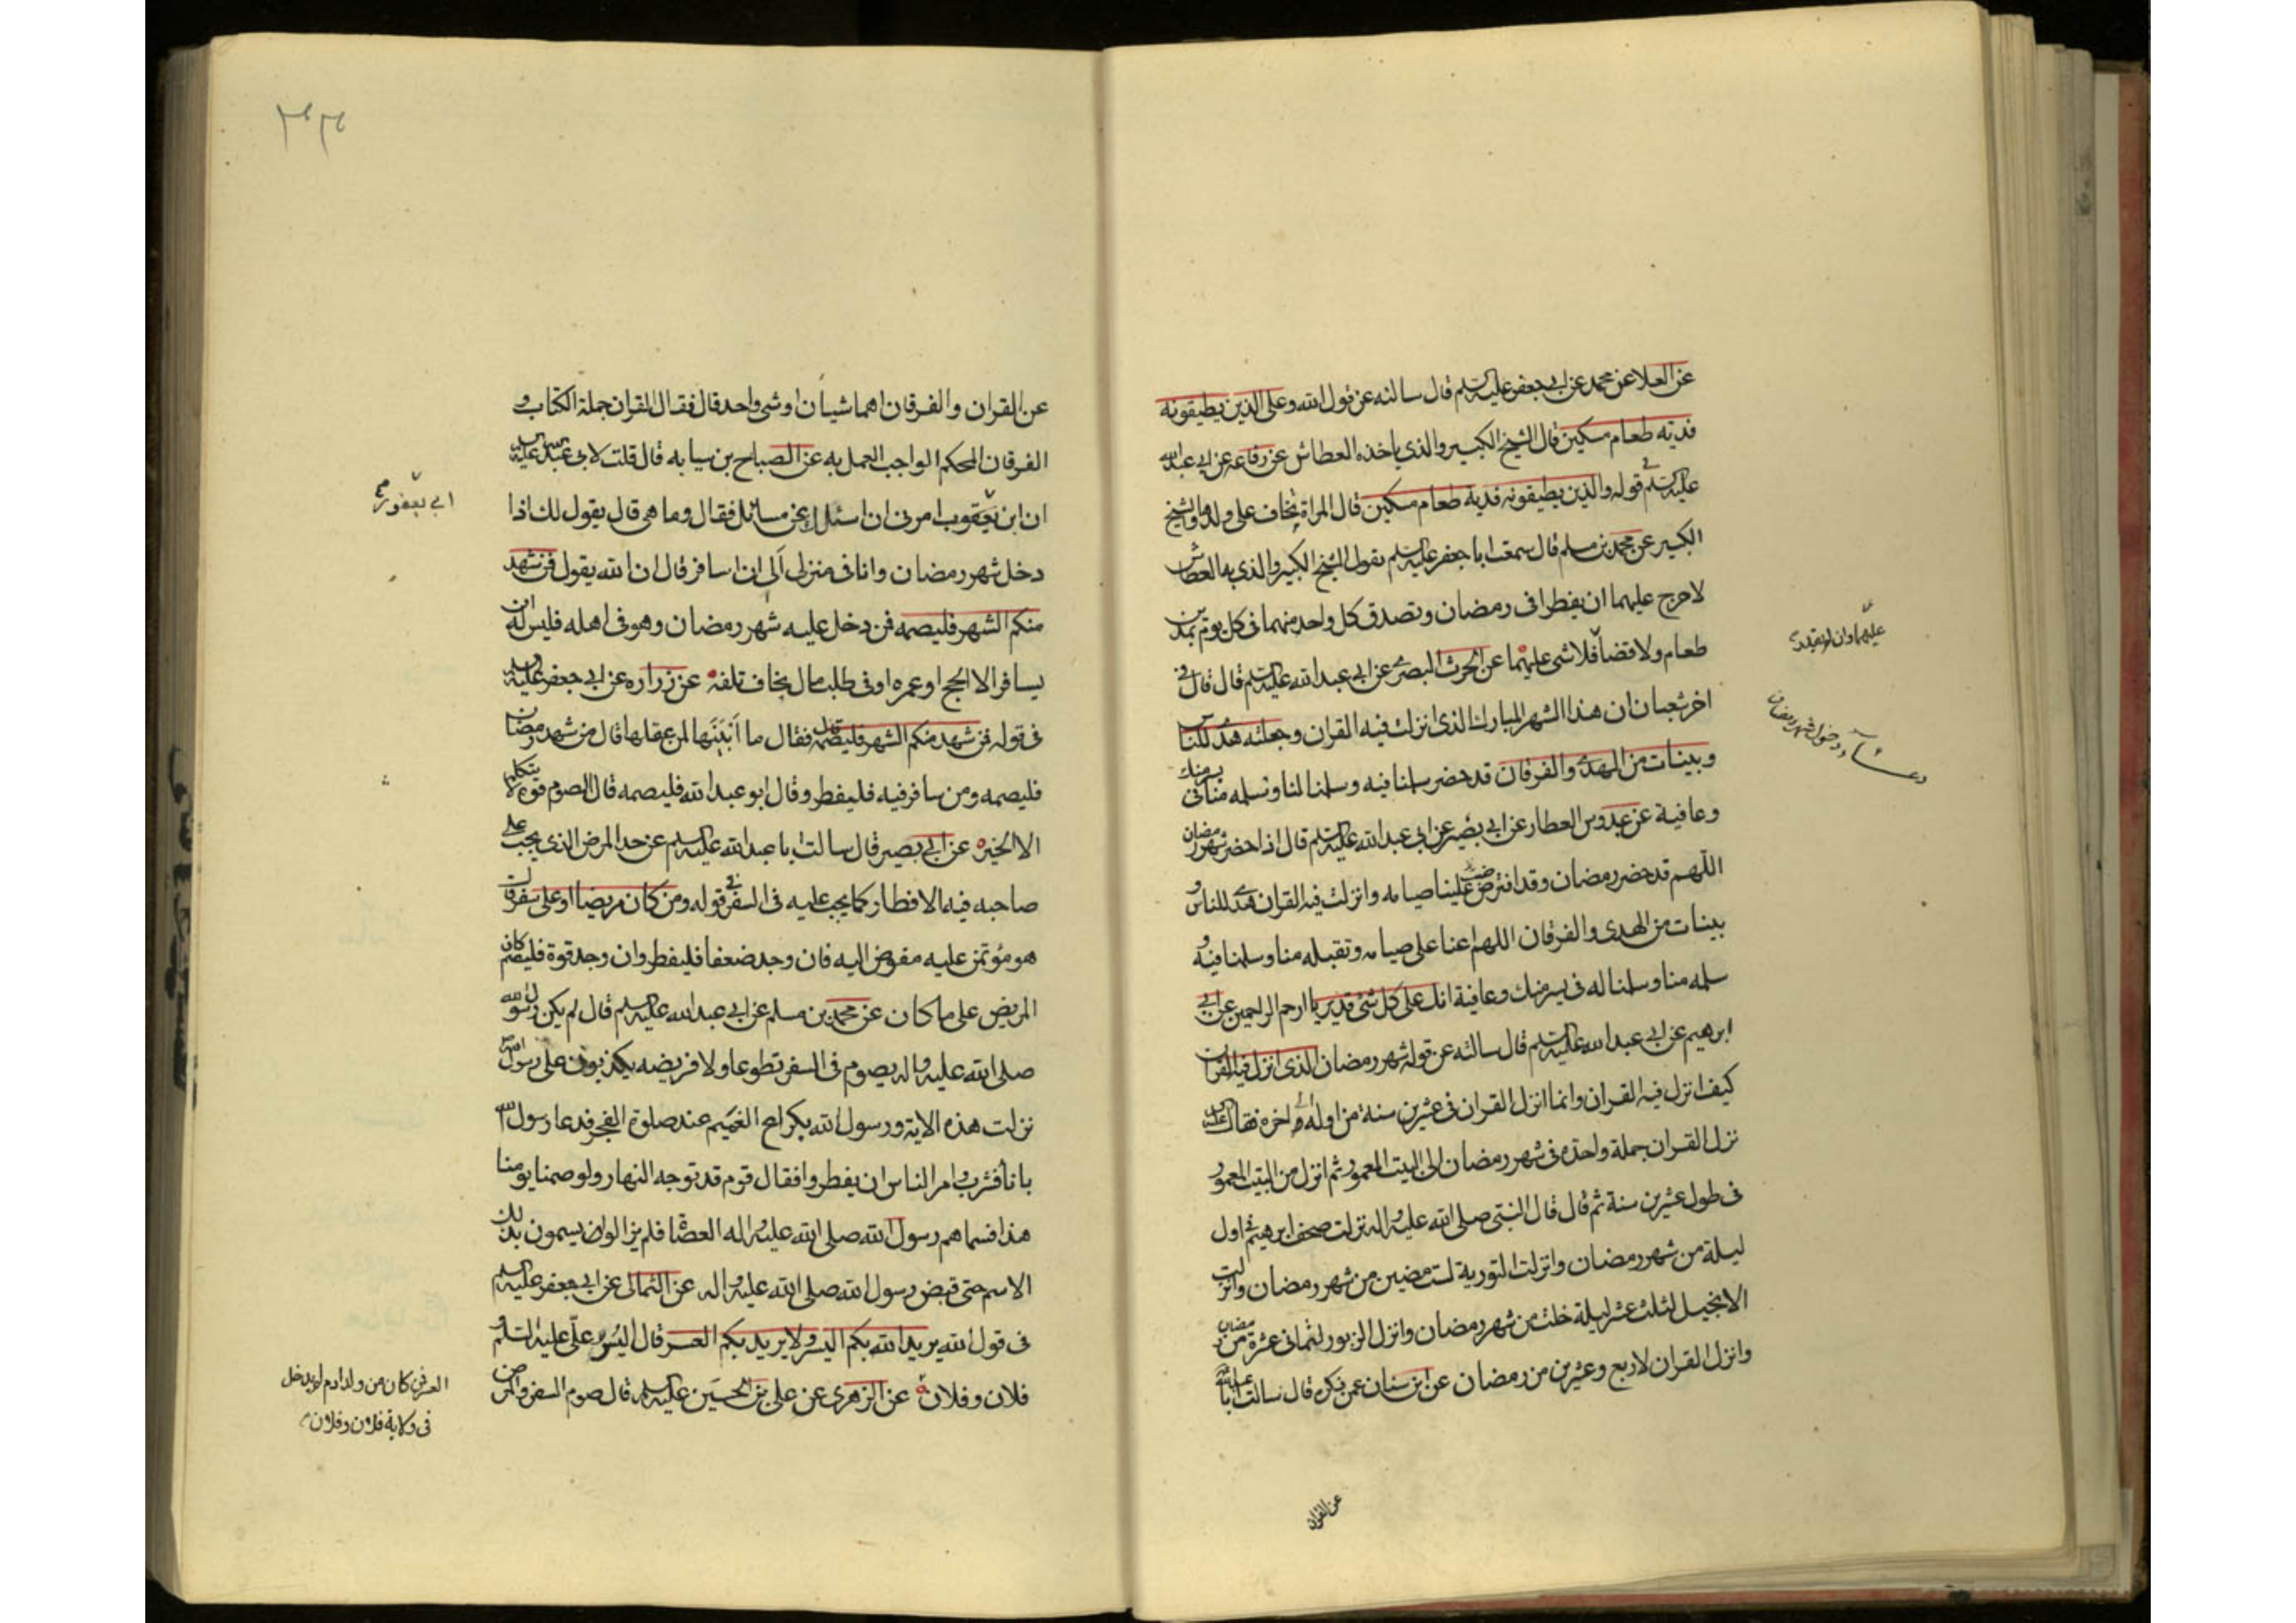 عن العلا عن محمد عن ابي جعفر عليه السلم قال سالته عن قول الله وعلى الذين يطيقونه
فدية طعام مسكين قال الشيخ الكبير والذي ياخذه العطاش عن رفاعه عن ابي عبد الله
عليه السلم في قوله والذين يطيقونه فدية طعام مسكين قال المراة تخاف على ولدها والشيخ
الكبير عن محمد بن مسلم قال سمعت ابا جعفر عليه السلم يقول الشيخ الكبير والذي به العطاش
لا حرج عليهما ان يفطرا في رمضان وتصدق كل واحد منهما في كل يوم بمدين
طعام ولا قضا فلا شي عليهما عن الحرث البصري عن ابي عبد الله عليه السلم قال قال في
عليهما وان لم يقدرا
اخر شعبان ان هذا الشهر المبارك الذي انزلت فيه القران وجعلته هدى للناس
دعاء دخول شهر رمضان
وبينات من الهدى والفرقان قد حضر سلمنا فيه وسلمنا لنا وتسلمه منا في يسر منك
وعافية عن عبدوس العطار عن ابي بصير عن ابي عبد الله عليه السلم قال اذا حضر شهر رمضان
اللهم قد حضر رمضان وقد افترضت علينا صيامه وانزلت فيه القران هدى للناس و
بينات من الهدى والفرقان اللهم اعنا على صيامه وتقبله منا وسلمنا فيه و
سلمه منا وسلمنا له في يسر منك وعافية انك على كل شئ قدير يا ارحم الراحمين عن ابي
ابرهيم عن ابي عبد الله عليه السلم قال سالته عن قوله شهر رمضان الذي انزل فيه القران
كيف انزل فيه القران وانما انزل القران في عشرين سنة من اوله الى اخره فقال عليه السلم
نزل القران جملة واحدة في شهر رمضان الى البيت المعمور ثم انزل من البيت المعمور
في طول عشرين سنة ثم قال قال النبي صلى الله عليه واله نزلت صحف ابرهيم في اول
ليلة من شهر رمضان وانزلت التورية لست مضين من شهر رمضان وانزلت
الانجيل لثلث عشر ليلة خلت من شهر رمضان وانزل الزبور لثماني عشرة من رمضان
وانزل القران لاربع وعشرين من رمضان عن ابن سنان عمن ذكره قال سالت ابا عبد الله
عن القران
عن القران والفرقان اهما شيان او شي واحد قال فقال القران جملة الكتاب و
الفرقان المحكم الواجب العمل به عن الصباح بن سيابه قال قلت لابي عبد الله عليه السلم
ان ابن يعقوب امرني ان اسئلك عن مسائل فقال وما هي قال يقول لك اذا
ابي يعفور
دخل شهر رمضان وانا في منزلي الي ان اسافر قال ان الله يقول فمن شهد
منكم الشهر فليصمه فمن دخل عليه شهر رمضان وهو في اهله فليس له ان
يسافر الا لحج او عمره او في طلب مال يخاف تلفه عن زراره عن ابي جعفر عليه السلم
في قوله فمن شهد منكم الشهر فليصمه قال فقال ما ابينها لمن عقلها قال من شهد رمضان
فليصمه ومن سافر فيه فليفطر وقال ابو عبد الله فليصمه قال الصوم فوه لا يتكلم
الا الخير عن ابي بصير قال سالت ابا عبد الله عليه السلم عن حد المرض الذي يجب على
صاحبه فيه الافطار كما يجب عليه في السفر في قوله ومن كان مريضا او على سفر قال
هو مؤتمن عليه مفوض اليه فان وجد ضعفا فليفطر وان وجد قوة فليصم كان
المريض على ما كان عن محمد بن مسلم عن ابي عبد الله عليه السلم قال لم يكن رسول الله
صلى الله عليه واله يصوم في السفر تطوعا ولا فريضه يكذبون على رسول الله
نزلت هذه الاية ورسول الله بكراع الغميم عند صلوة الفجر فدعا رسول الله
باناء فشرب وامر الناس ان يفطروا فقال قوم قد توجه النهار ولو صمنا يومنا
هذا فسماهم رسول الله صلى الله عليه واله العصاة فلم يزالوا يسمون بذلك
الاسم حتى قبض رسول الله صلى الله عليه واله عن الثمالي عن ابي جعفر عليه السلم
في قول الله يريد الله بكم اليسر ولا يريد بكم العسر قال اليسر علي عليه السلم و
فلان وفلان عن الزهري عن علي بن الحسين عليه السلم قال صوم السفر والمرض
العسر فمن كان من ولد ادم لم يدخل
في ولاية فلان وفلان